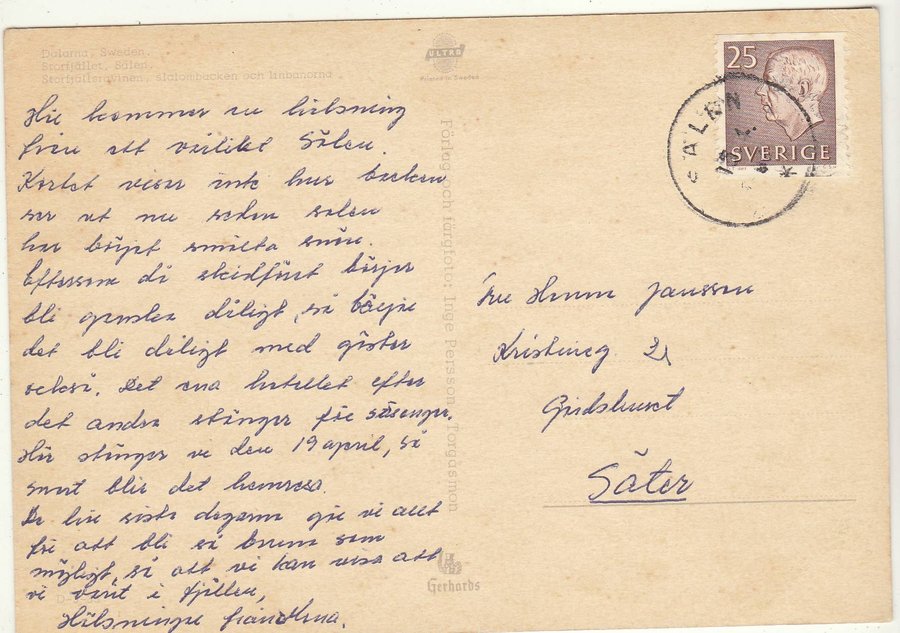 Dalarna, Sweden.
Storfjället, Sälen.
Storfjällsravinen, slalombacken och linbanorna
ULTRA
Printed in Sweden
Här kommer nu hälsning
från ett vårlikt Sälen.
Kortet visar inte hur backen
ser ut nu sedan solen
har börjat smälta snön.
Eftersom då skidföret börjar
bli ganska dåligt, så börjar
det bli dåligt med gäster
också. Det ena hotellet efter
det andra stänger för säsongen.
Här stänger vi den 19 april, så
snart blir det hemresa.
De här sista dagarna gör vi allt
för att bli så bruna som
möjligt, så att vi kan visa att
vi varit i fjällen,
Hälsningar från
Förlag och färgfoto: Inge Persson, Torgåsmon
Gerhards
25
SVERIGE
SÄLEN
Jansson
Kristineg 21
Säter